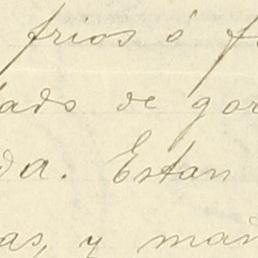 frios ó f
ado de gor
da. Estan
as, y mañ